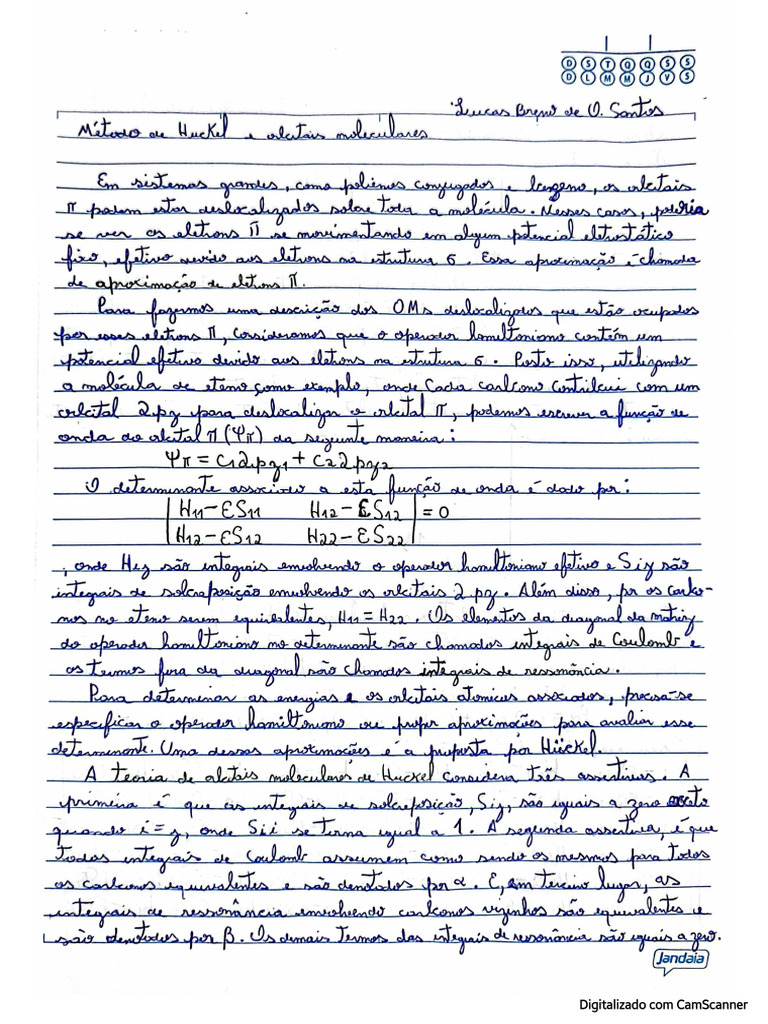 D S T Q Q S S
D L M M J V S
Lucas Breno de O. Santos
Método de Huckel e orbitais moleculares
Em sistemas grandes, como polienos conjugados e benzeno, os orbitais
π podem estar deslocalizados sobre toda a molécula. Nesses casos, poderia
se ver os eletrons π se movimentando em algum potencial eletrostático
fixo, efetivo devido aos eletrons na estrutura σ. Essa aproximação é chamada
de aproximação de eletrons π.
Para fazermos uma descrição dos OMs deslocalizados que estão ocupados
por esses eletrons π, consideramos que o operador hamiltoniano contém um
potencial efetivo devido aos eletrons na estrutura σ. Posto isso, utilizando
a molécula de eteno como exemplo, onde cada carbono contribui com um
orbital 2pz para deslocalizar o orbital π, podemos escrever a função de
onda do orbital π (Ψπ) da seguinte maneira:
Ψπ = C12pz1 + C22pz2
O determinante associado a esta função de onda é dado por:
| H11-ES11 H12-ES12 | = 0
| H12-ES12 H22-ES22 |
, onde Hij são integrais envolvendo o operador hamiltoniano efetivo e Sij são
integrais de sobreposição envolvendo os orbitais 2pz. Além disso, por os carbo-
nos no eteno serem equivalentes, H11 = H22. Os elementos da diagonal da matriz
do operador hamiltoniano no determinante são chamados integrais de Coulomb e
os termos fora da diagonal são chamados integrais de ressonância.
Para determinar as energias e os orbitais atomicos associados, precisa-se
especificar o operador hamiltoniano ou propor aproximações para avaliar esse
determinante. Uma dessas aproximações é a proposta por Hückel.
A teoria de orbitais moleculares de Huckel considera três assertivas. A
primeira é que as integrais de sobreposição, Sij, são iguais a zero exceto
quando i=j, onde Sii se torna igual a 1. A segunda assertiva, é que
todas integrais de Coulomb assumem como sendo os mesmos para todos
os carbonos equivalentes e são denotados por α. E, em terceiro lugar, as
integrais de ressonância envolvendo carbonos vizinhos são equivalentes e
são denotados por β. Os demais termos das integrais de ressonância são iguais a zero.
Jandaia
Digitalizado com CamScanner